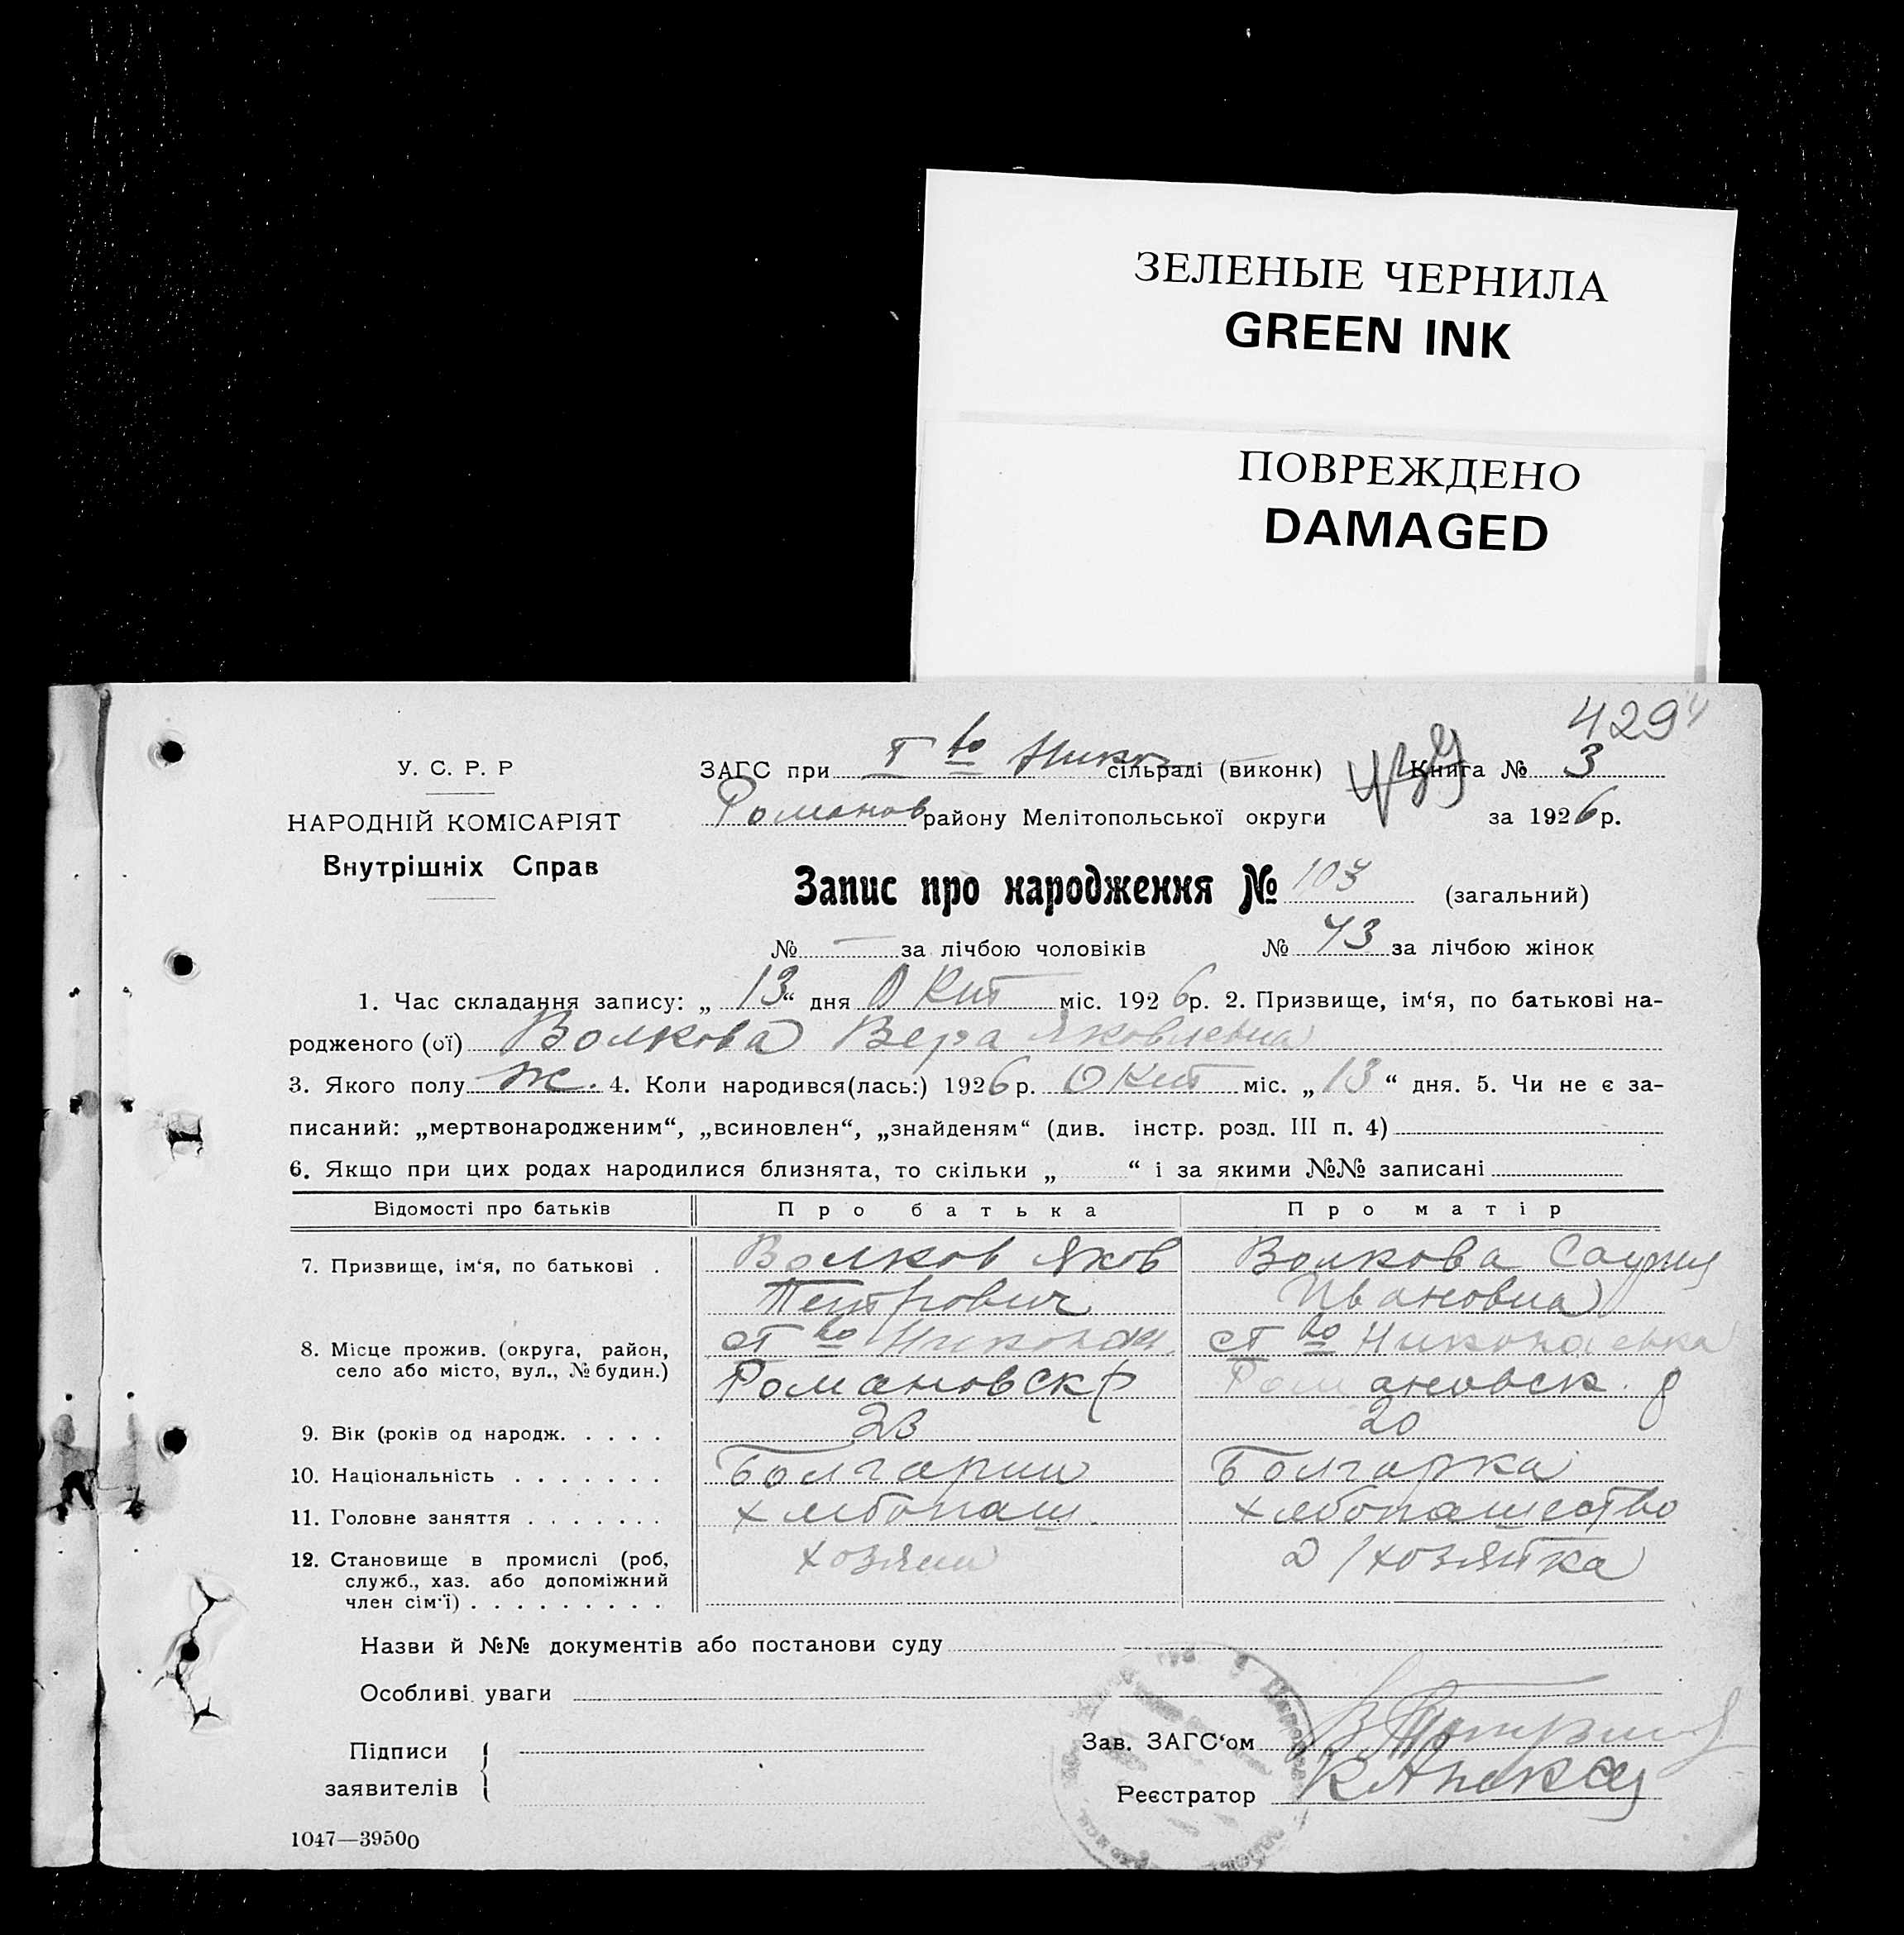 ЗЕЛЕНЫЕ ЧЕРНИЛА
GREEN INK
ПОВРЕЖДЕНО
DAMAGED
429
У. С. Р. Р
НАРОДНІЙ КОМІСАРІЯТ
Внутрішніх Справ
ЗАГС при І во Нико сільраді (виконк) Книга № 3
Романов району Мелітопольської округи за 1926 р.
Запис про народження № 103 (загальний)
№ — за лічбою чоловіків № 43 за лічбою жінок
1. Час складання запису: „ 13 “ дня Окт міс. 1926 р. 2. Призвище, ім‘я, по батькові на-
родженого (ої) Волкова Вера Яковлевна
3. Якого полу ж. 4. Коли народився(лась:) 1926 р. Окт міс. „ 13 “ дня. 5. Чи не є за-
писаний: „мертвонародженим“, „всиновлен“, „знайденям“ (див. інстр. розд. III п. 4)
6. Якщо при цих родах народилися близнята, то скільки „ “ і за якими №№ записані
Відомості про батьків Про батька Про матір
7. Призвище, ім‘я, по батькові . Волков Яков Волкова
Петрович Ивановна
8. Місце прожив. (округа, район, І во Николаи І во Николаевка
село або місто, вул., № будин.) Романовск р Романовск. р
9. Вік (років од народж. . . . . 23 20
10. Національність . . . . . . . Болгарин Болгарка
11. Головне заняття . . . . . . . хлебопаш. хлебопашество
12. Становище в промислі (роб, хозяин хозяйка
служб., хаз. або допоміжний
член сім‘ї) . . . . . . . . .
Назви й №№ документів або постанови суду
Особливі уваги
Підписи
заявителів
Зав. ЗАГС‘ом
Реєстратор
1047—39500